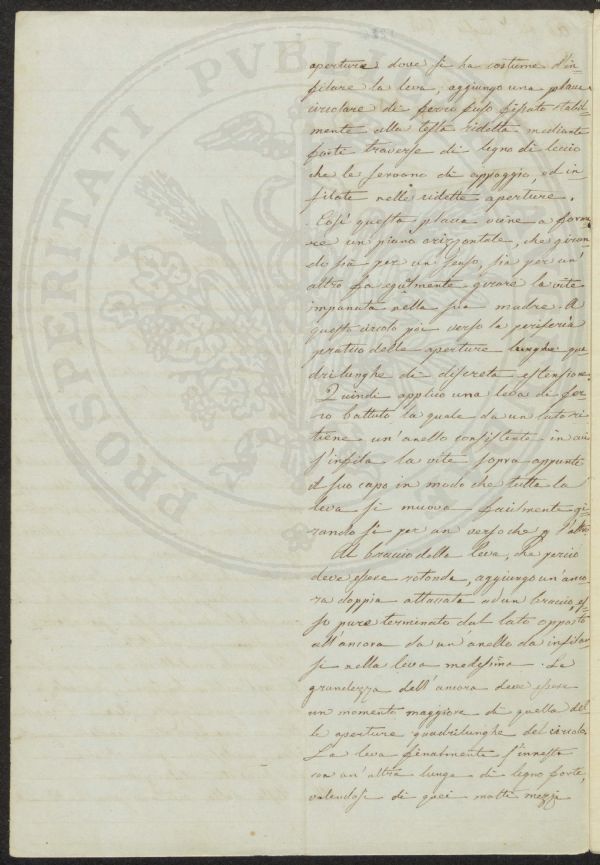 PROSPERITATI PVBLI
aperture dove si ha costume d'in=
filare la leva, aggiungo una placca
circolare di ferro fuso fissata stabil=
mente alla testa ridetta mediante
forti traverse di legno di leccio
che le servano di appoggio, ed in=
filate nelle ridette aperture.
Così questa placca viene a forma=
re un piano orizzontale, che giran=
do sia per un senso, sia per un'
altro fa egualmente girare la vite
impanata nella sua madre. A
questo circolo poi verso la periferia
pratico delle aperture lunghe qua
drilunghe di discreta estensione.
Quindi applico una leva di fer=
ro battuto la quale da un lato ri=
tiene un'anello consistente in cui
s'infila la vite sopra appunto
il suo capo in modo che tutta la
leva si muova facilmente gi=
rando sì per un verso che p l'altro
Al braccio della leva, che perciò
deve essere rotonda, aggiungo un'anco=
ra doppia attaccata ad un braccio, es=
so pure terminato dal lato opposto
all'ancora da un'anello da infilar=
si nella leva medesima. La
grandezza dell'ancora deve essere
un momento maggiore di quella del
le aperture quadrilunghe del circolo.
La leva finalmente s'innesta
con un'altra lunga di legno forte,
valendosi di quei molti mezzi